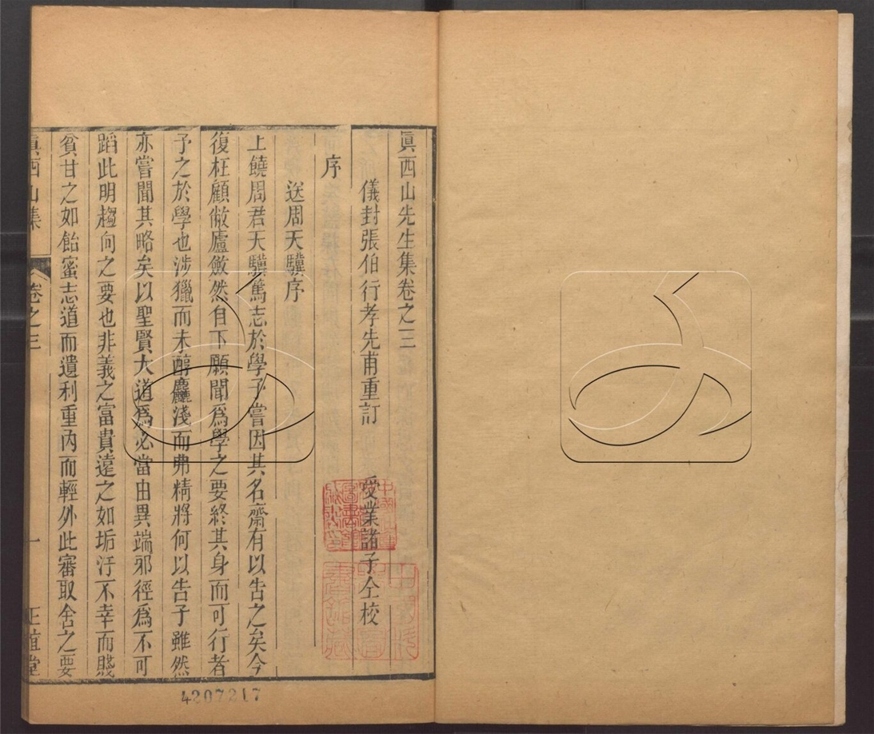 真西山先生集卷之三
儀封張伯行孝先甫重訂 受業諸子仝校
序
送周天驥序
上饒周君天驥篤志於學予嘗因其名齋有以告之矣今
復枉顧敝廬斂然自下願聞爲學之要終其身而可行者
予之於學也涉獵而未醇麤淺而弗精將何以告子雖然
亦嘗聞其略矣以聖賢大道爲必當由異端邪徑爲不可
蹈此明趨向之要也非義之富貴遠之如垢汙不幸而賤
貧甘之如飴蜜志道而遺利重內而輕外此審取舍之要
真西山集 卷之三 一 正誼堂
4207217